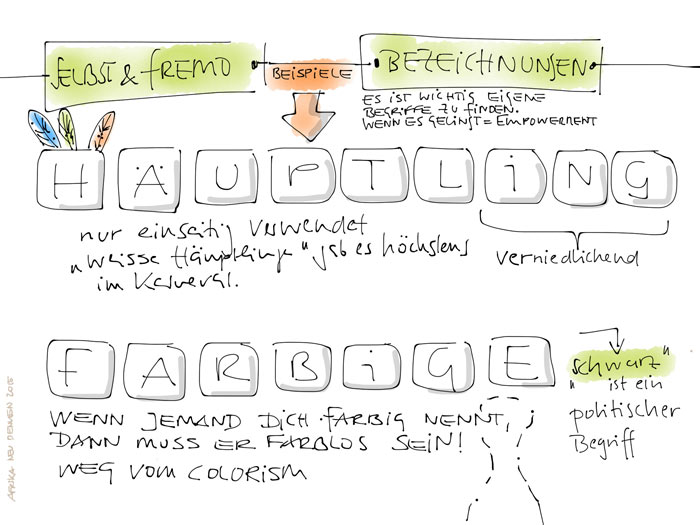 SELBST & FREMD
BEISPIELE
BEZEICHNUNGEN
ES IST WICHTIG EIGENE
BEGRIFFE ZU FINDEN.
WENN ES GELINGT = EMPOWERMENT
HÄUPTLING
nur einseitig verwendet
„Weisse Häuptlinge" gab es höchstens
im Karneval.
verniedlichend
FARBiGE
WENN JEMAND DICH FARBIG NENNT,
DANN MUSS ER FARBLOS SEIN!
WEG VOM COLORISM
„schwarz"
ist ein
politischer
Begriff
AFRIKA NEU DENKEN 2015